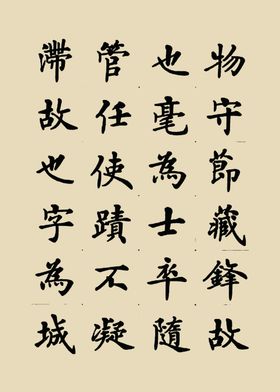 物守節藏鋒故
也毫為士卒隨
管任使蹟不凝
滯故也字為城